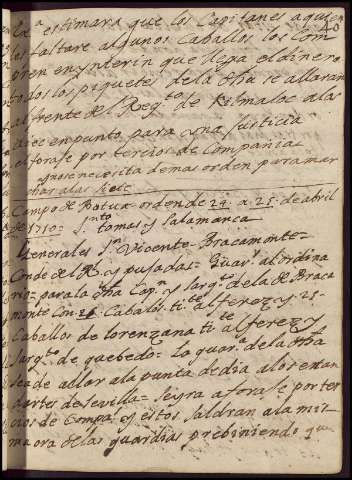 40
Exª estimara que los Capitanes aquien
les faltare algunos Caballos los Com
pren enynterin que llega el dinero
todos los piquetes dela Otta se allaran
al frente del Regto de Kilmaloc alas
diez en punto para una Justicia
el foraje por tercios de Compañias
no se necesita demas orden para mar
char alas siete
Campo de Botua orden de 24 a 25 de abril
de 1710 = Snto tomas y Salamanca
Generales Dn Vicente Bracamonte =
Conde del R. y pusadas = Guarª al ordina
rio = para la Otta Capn y sargto dela de Braca
monte Con 26 Cabalos tite alferez y 25
Caballos de lorenzana tite alferez y
Sargto de quebedo = la guarª dela Otta
sea de allar ala punta de dia al oreman
dartes de Sevilla = seyra a forase por ter
cios de Compas y estos saldran ala mis
ma ora delas guardias prebiniendo que